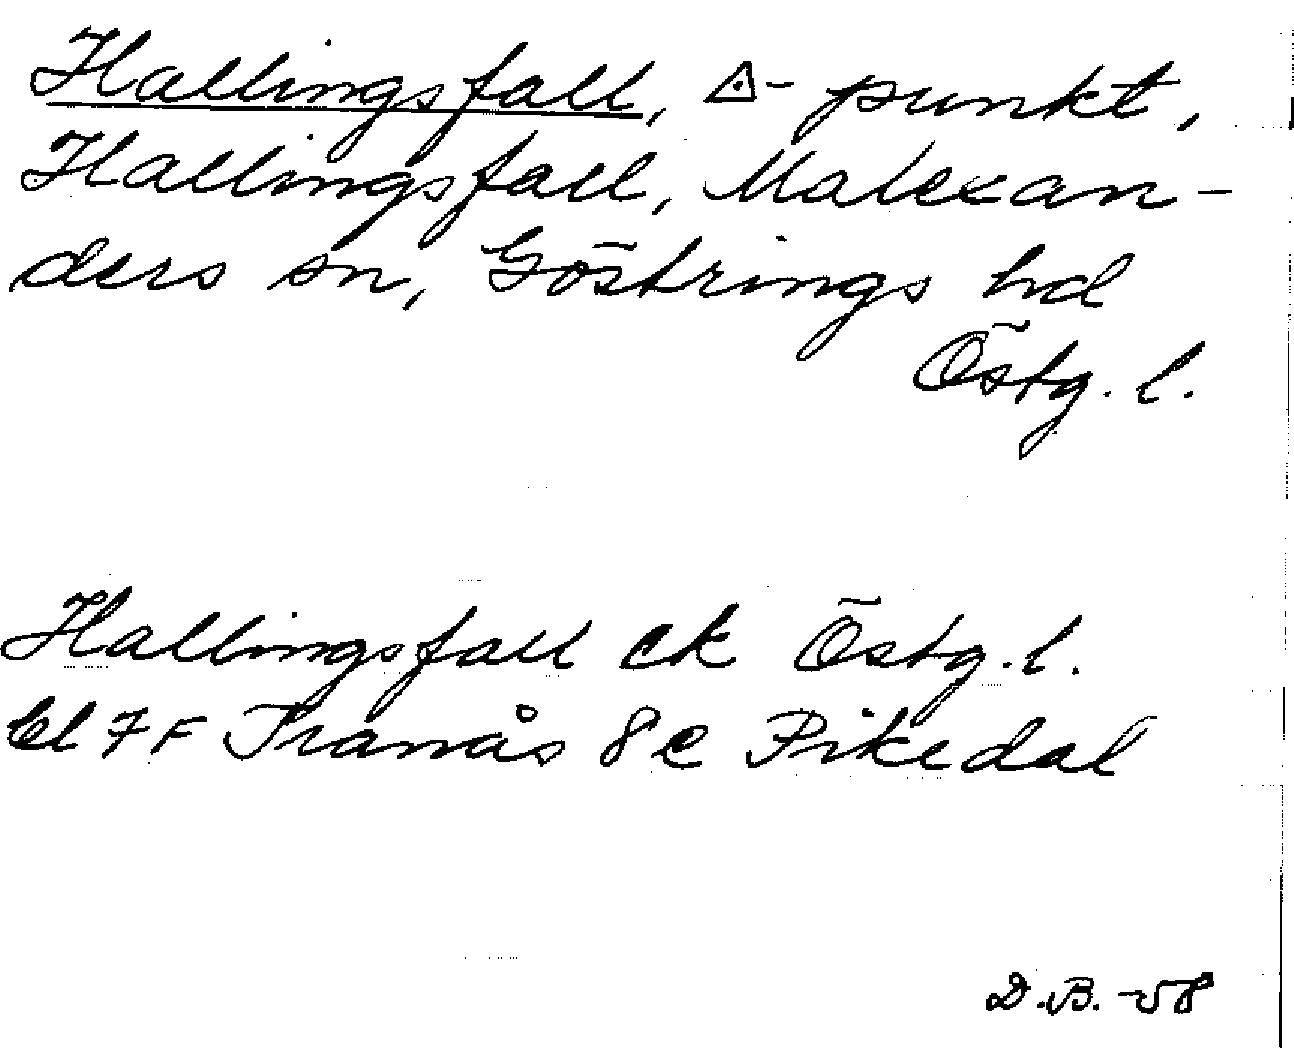 Hallingsfall, △-punkt,
Hallingsfall, Malexan-
ders sn, Göstrings hd
Östg. l.
Hallingsfall ek Östg. l.
bl 7F Tranås 8e Pikedal
D.B. -58